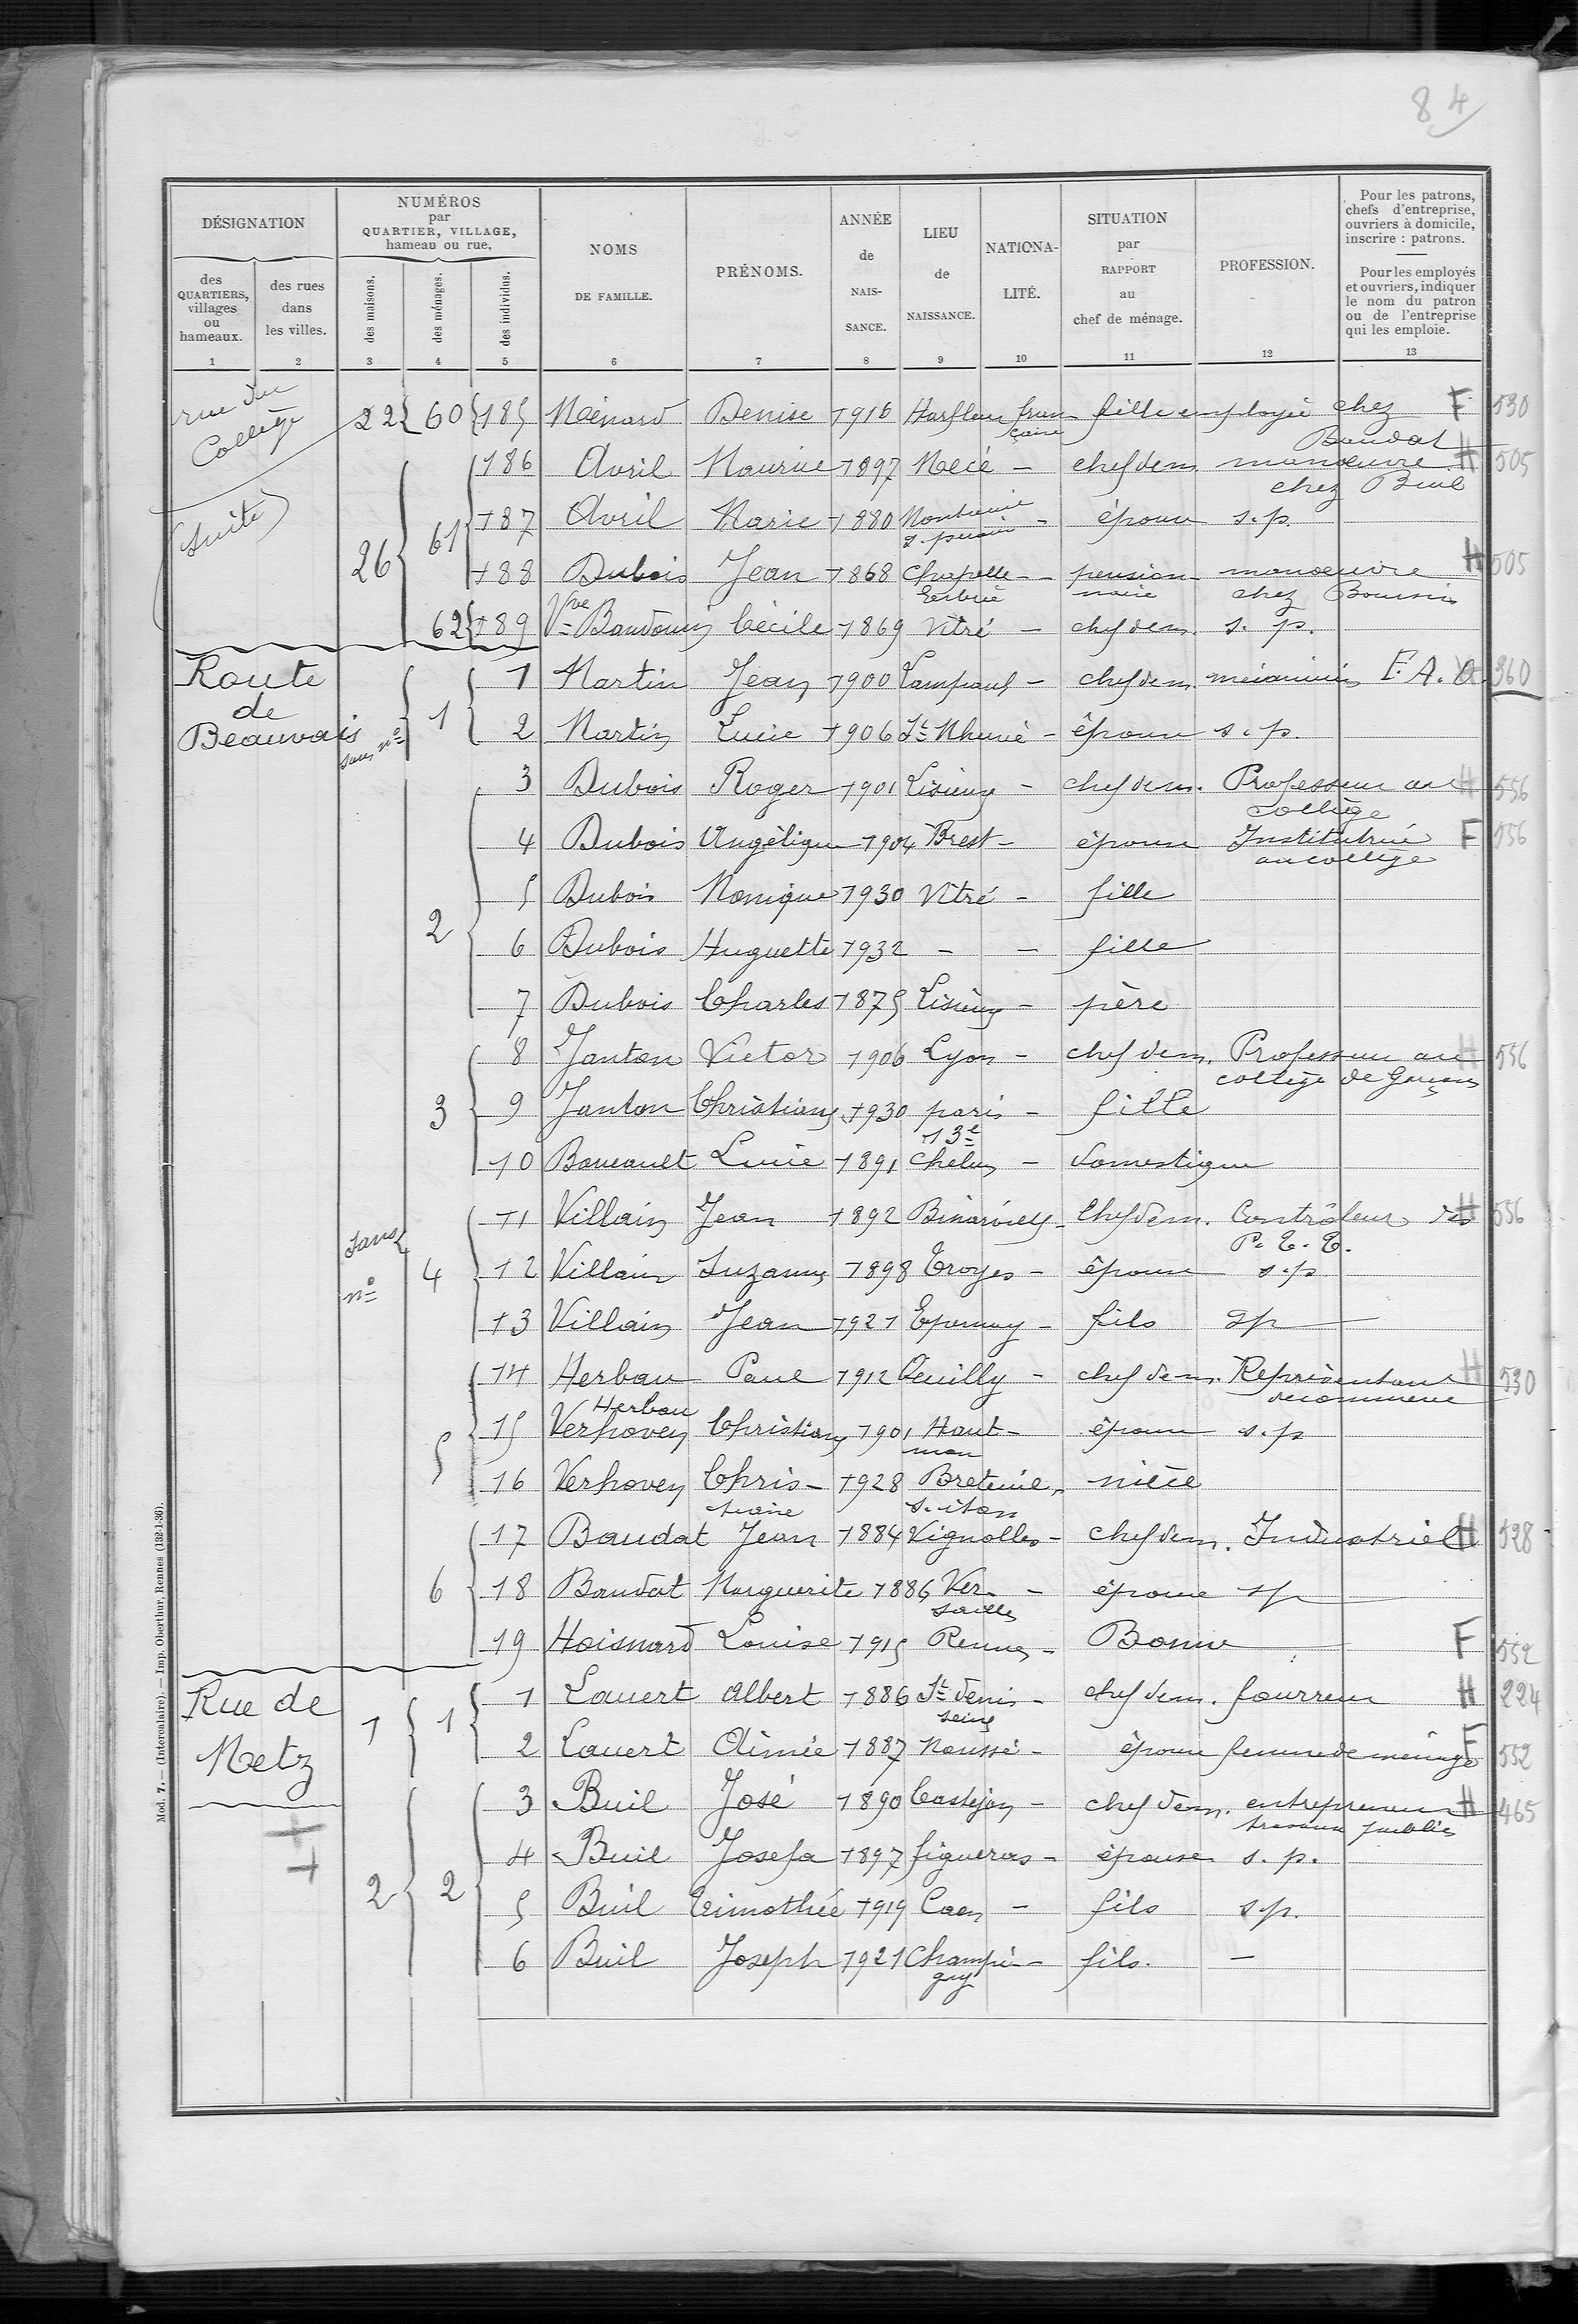 84
DÉSIGNATION
NUMÉROS
par
QUARTIER, VILLAGE,
hameau ou rue.
des
QUARTIERS,
villages
ou
hameaux.
des rues
dans
les villes.
des maisons.
des ménages.
des individus.
NOMS
DE FAMILLE.
PRÉNOMS.
ANNÉE
de
NAIS-
SANCE.
LIEU
de
NAISSANCE.
NATIONA-
LITÉ.
SITUATION
par
RAPPORT
au
chef de ménage.
PROFESSION.
Pour les patrons,
chefs d'entreprise,
ouvriers à domicile,
inscrire : patrons.
Pour les employés
et ouvriers, indiquer
le nom du patron
ou de l'entreprise
qui les emploie.
1 2 3 4 5 6 7 8 9 10 11 12 13
rue du
Collège
(suite)
22 60 185 Ménard Denise 1916 Harfleur fran- fille employée chez F 530
çaise Baudat
186 Avril Maurice 1897 Mecé - chef de m. manœuvre H 505
chez Buil
26 61 187 Avril Marie 1880 - épouse s.p.
188 Dubois Jean 1868 Chapelle - pension- manoeuvre H 505
Erbrée naire chez
62 189 Vve Baudouin Cécile 1869 Vitré - chef de m. s. p.
Route
de
Beauvais
sans n°
1 1 Martin Jean 1900 Lampaul - chef de m. mécanicien E. A. 360
2 Martin Lucie 1906 - épouse s.p.
2 3 Dubois Roger 1901 Lisieux - chef de m. Professeur au H 556
collège
4 Dubois Angélique 1904 Brest - épouse Institutrice F 556
au collège
5 Dubois Monique 1930 Vitré - fille
6 Dubois Huguette 1932 - - fille
7 Dubois Charles 1875 Lisieux - père
3 8 Janton Victor 1906 Lyon - chef de m. Professeur au H 556
collège de Garçons
9 Janton Christiane 1930 paris - fille
13e
10 Boucault Lucie 1891 Chelun - domestique
sans
n°
4 11 Villain Jean 1892 - Chef de m. Contrôleur des H 556
P. T. T.
12 Villain Suzanne 1898 Troyes - épouse s.p
13 Villain Jean 1921 Epernay - fils sp
5 14 Herbau Paul 1912 - chef de m. Représentant H 530
de commerce
Herbau
15 Verhoven Christiane 1901 Haut- épouse s.p
mon
16 Verhoven Chris- 1928 Breteuil - nièce
tiane s. iton
6 17 Baudat Jean 1884 Vignolles - chef de m. Industriel H 528
18 Baudat Marguerite 1886 Ver- - épouse sp
sailles
19 Hoisnard Louise 1915 Rennes - Bonne F 552
Rue de
Metz
1 1 1 Lauert Albert 1886 St Denis - chef de m. fourreur H 224
seine
2 Lauert Aimée 1887 Noussé - épouse femme de ménage F 552
2 2 3 Buil José 1890 Castejon - chef de m. entrepreneur H 465
travaux publics
4 Buil Josefa 1897 figueras - épouse s. p.
5 Buil Timothée 1919 Caen - fils s.p.
6 Buil Joseph 1921 Champi- - fils. -
gny
Mod. 7. — (Intercalaire). — Imp. Oberthur, Rennes (132-1-36).